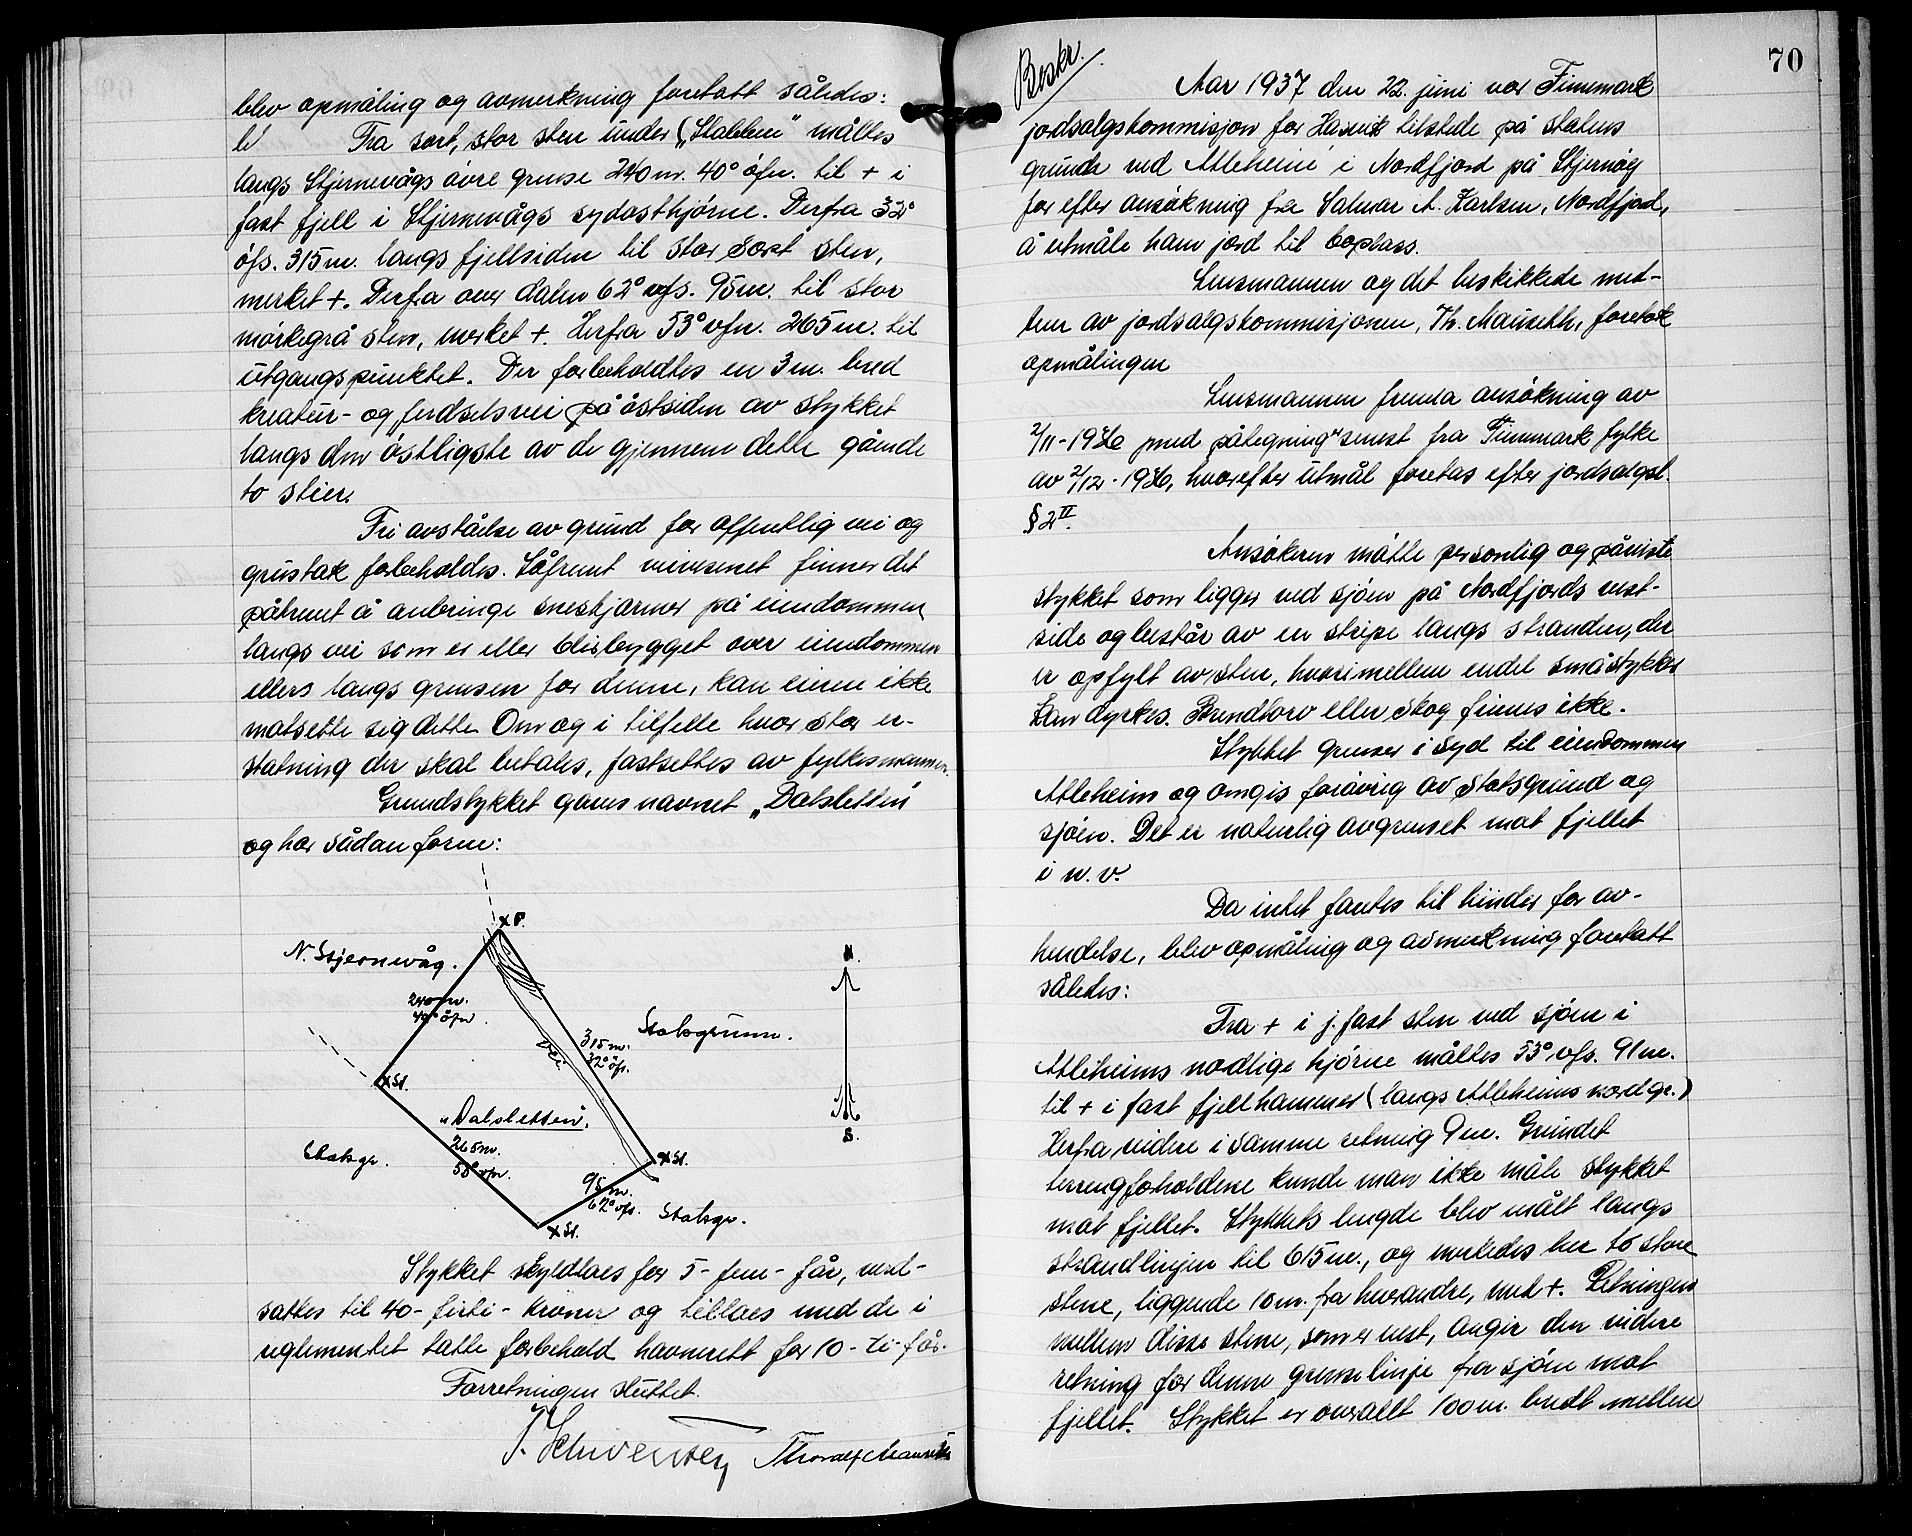 blev opmåling og avmerkning foretatt således:
Fra sort, stor sten under „Stabben" måltes
langs Stjernevågs øvre grense 240 m. 40° øfn. til + i
fast fjell i Stjernevågs sydøsthjørne. Derfra 32°
øfs. 315 m. langs fjellsiden til stor sort sten,
merket +. Derfra over dalen 62° vfs. 95 m. til stor
mørkegrå sten, merket +. Herfra 53° vfn. 265 m. til
utgangspunktet. Der forbeholdtes en 3 m. bred
kreatur- og ferdselsvei på østsiden av stykket
langs den østligste av de gjennem dette gående
to stier.
Fri avståelse av grund for offentlig vei og
grustak forbeholdes. Såfremt veivesenet finner det
påkrevet å anbringe sneskjermer på eiendommen
langs vei som er eller blir bygget over eiendommen
ellers langs grensen for denne, kan eieren ikke
motsette sig dette. Om og i tilfelle hvor stor er-
statning der skal betales, fastsettes av fylkesmannen.
Grundstykket gaves navnet „Dalsletten"
og har sådan form:
x F.
N. Stjernevåg.
N.
240 m.
40° øfn.
Statsgrunn.
315 m.
32° øfs.
vei
x St.
„Dalsletten".
S.
265 m.
53° vfn.
Statsgr.
x St.
95 m.
62° vfs.
Statsgr.
x St.
Stykket skyldtaes for 5 - fem - får, verd-
sattes til 40 - firti - kroner og tillaes med de i
reglementet tatte forbehold havnerett for 10 - ti - får.
Forretningen sluttet.
Thoralf Mauseth
70
Beskr.
Aar 1937 den 22. juni var Finnmark
jordsalgskommisjon for Hasvik tilstede på statens
grund ved Atleheim i Nordfjord på Stjernøy
for efter ansøkning fra Salmar A. Karlsen, Nordfjord,
å utmåle ham jord til boplass.
Lensmannen og det beskikkede med-
lem av jordsalgskommisjonen, Th. Mauseth, foretok
opmålingen
Lensmannen fremla ansøkning av
2/11-1936 med påtegning senest fra Finnmark fylke
av 2/12-1936, hvorefter utmål foretas efter jordsalgsl.
§ 2 II.
Ansøkeren møtte personlig og påviste
stykket som ligger ved sjøen på Nordfjords vest-
side og består av en stripe langs stranden, der
er opfylt av sten, hvorimellem endel småstykker
kan dyrkes. Brendtorv eller skog finnes ikke.
Stykket grenser i syd til eiendommen
Atleheim og omgis forøvrig av Statsgrund og
sjøen. Det er naturlig avgrenset mot fjellet
i n.v.
Da intet fantes til hinder for av-
hendelse, blev opmåling og avmerkning foretatt
således:
Fra + i j. fast sten ved sjøen i
Atleheims nordlige hjørne måltes 53° vfs. 91 m.
til + i fast fjellhammer (langs Atleheims nordgr.)
Herfra videre i samme retning 9 m. Grundet
terrengforholdene kunde man ikke måle stykket
mot fjellet. Stykkets lengde blev målt langs
strandlinjen til 615 m., og merkedes her to store
stene, liggende 10 m. fra hverandre, med +. Retningen
mellem disse stene, som er vest, angir den videre
retning for denne grenselinje fra sjøen mot
fjellet. Stykket er overalt 100 m. bredt mellem